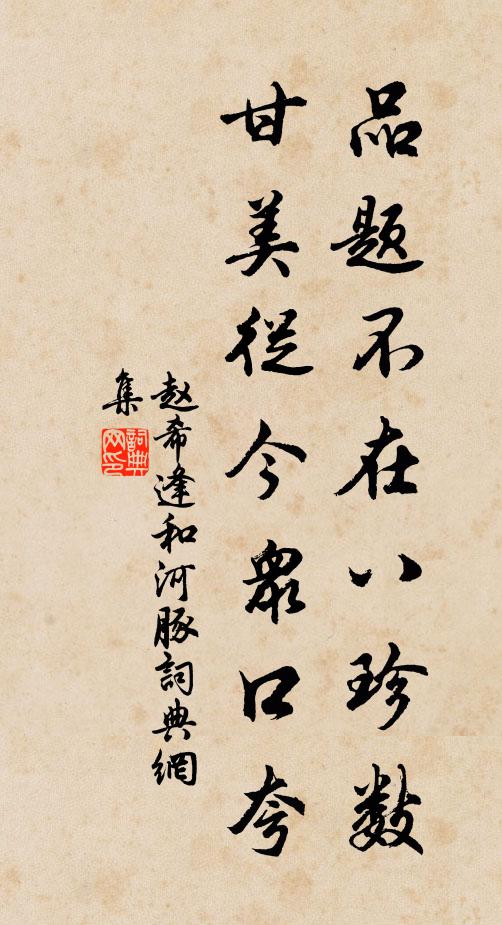 品题不在八珍数
甘美從今衆口夸
赵希逢和河豚詞典網
集
詞典網印